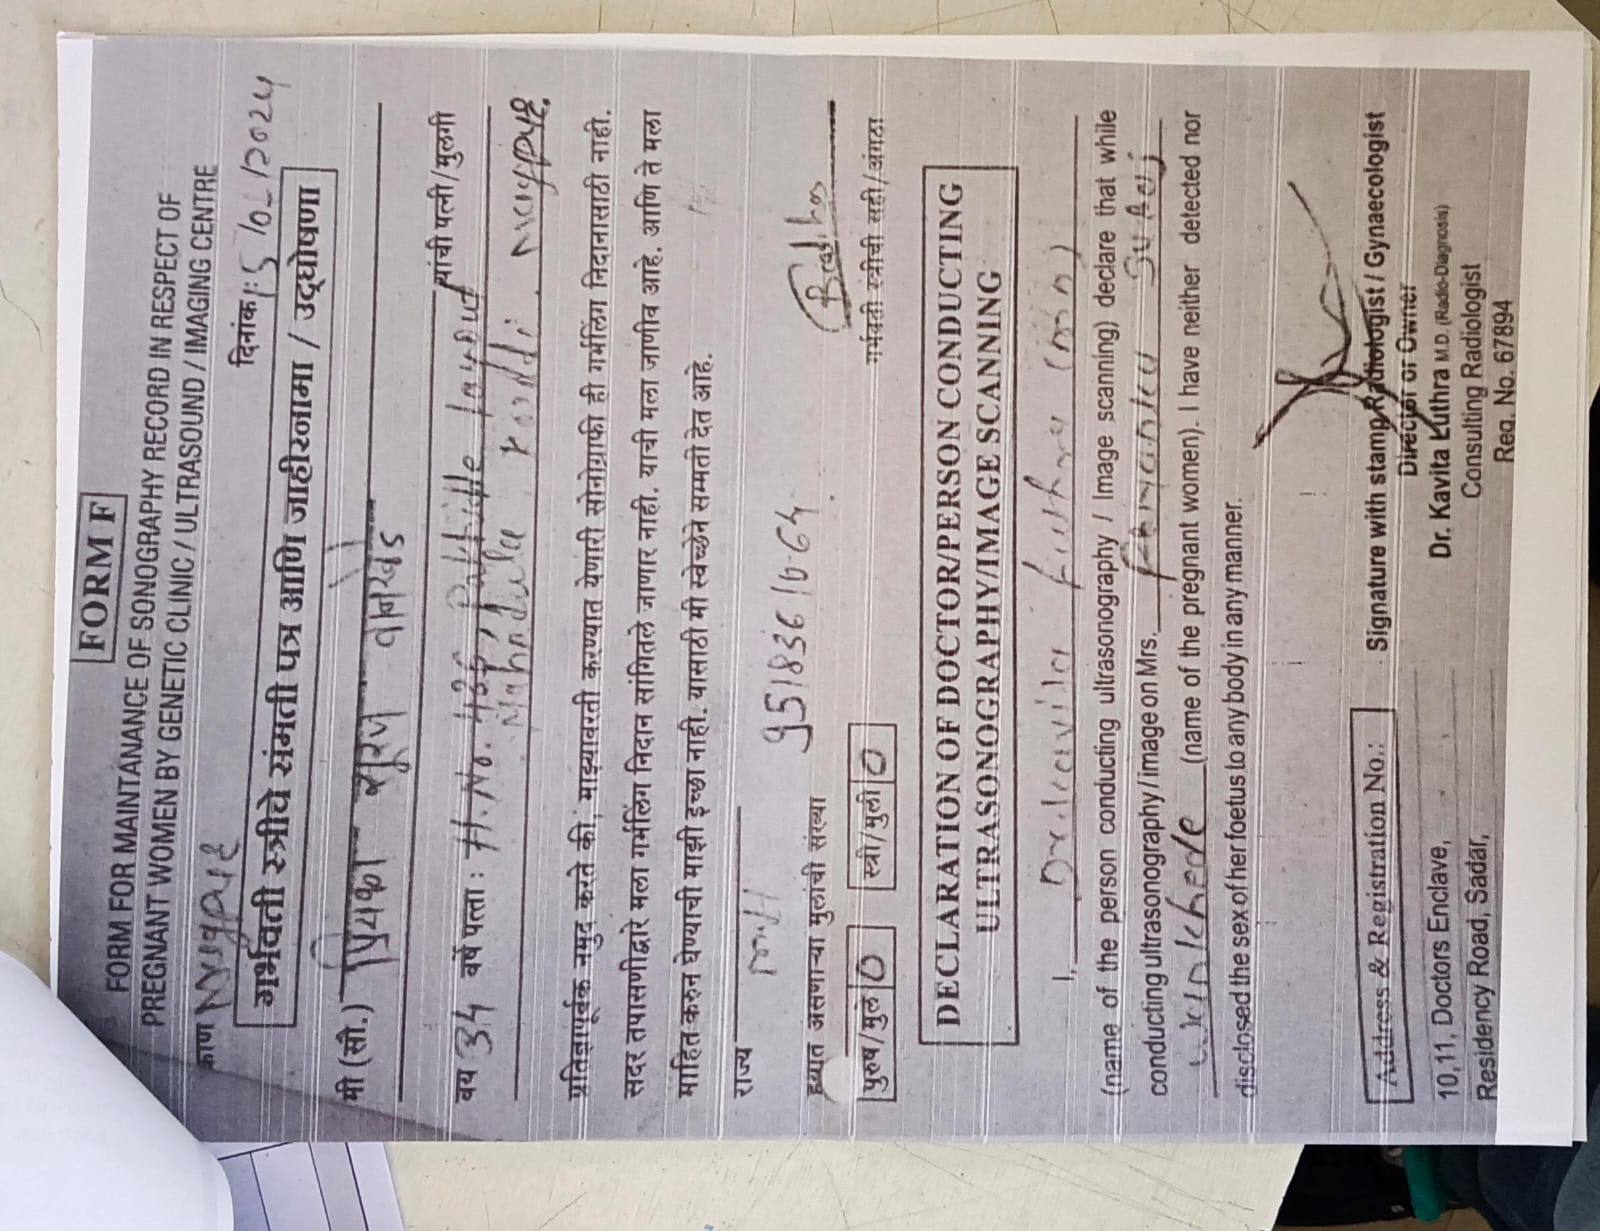 FORM F
FORM FOR MAINTANANCE OF SONOGRAPHY RECORD IN RESPECT OF
PREGNANT WOMEN BY GENETIC CLINIC / ULTRASOUND / IMAGING CENTRE
काण Nagpur दिनांक 15/02/2024
गर्भवती स्त्रीचे संमती पत्र आणि जाहीरनामा / उद्घोषणा
मी (सौ.) प्रियंका सुरज वानखेडे
यांची पत्नी/मुलगी
वय 34 वर्षे पत्ता : H. No. Layout
Mahadula, Koradi. Nagpur.
प्रतिज्ञापूर्वक नमुद करते की, माझ्यावरती करण्यात येणारी सोनोग्राफी ही गर्भलिंग निदानासाठी नाही.
सदर तपासणीद्वारे मला गर्भलिंग निदान सांगितले जाणार नाही. याची मला जाणीव आहे. आणि ते मला
माहित करुन घेण्याची माझी इच्छा नाही. यासाठी मी स्वेच्छेने सम्मती देत आहे.
राज्य MH
हयात असणाऱ्या मुलांची संख्या
पुरुष/मुले 0 स्त्री/मुली 0
गर्भवती स्त्रीची सही/अंगठा
DECLARATION OF DOCTOR/PERSON CONDUCTING
ULTRASONOGRAPHY/IMAGE SCANNING
I, Dr. Kavita Luthra
(name of the person conducting ultrasonography / Image scanning) declare that while
conducting ultrasonography/image on Mrs. Priyanka Suraj
Wankhede (name of the pregnant women). I have neither detected nor
disclosed the sex of her foetus to any body in any manner.
Address & Registration No.:
10,11, Doctors Enclave,
Residency Road, Sadar,
Signature with stamp Radiologist / Gynaecologist
Director or Owner
Dr. Kavita Luthra M.D. (Radio-Diagnosis)
Consulting Radiologist
Reg. No. 67894